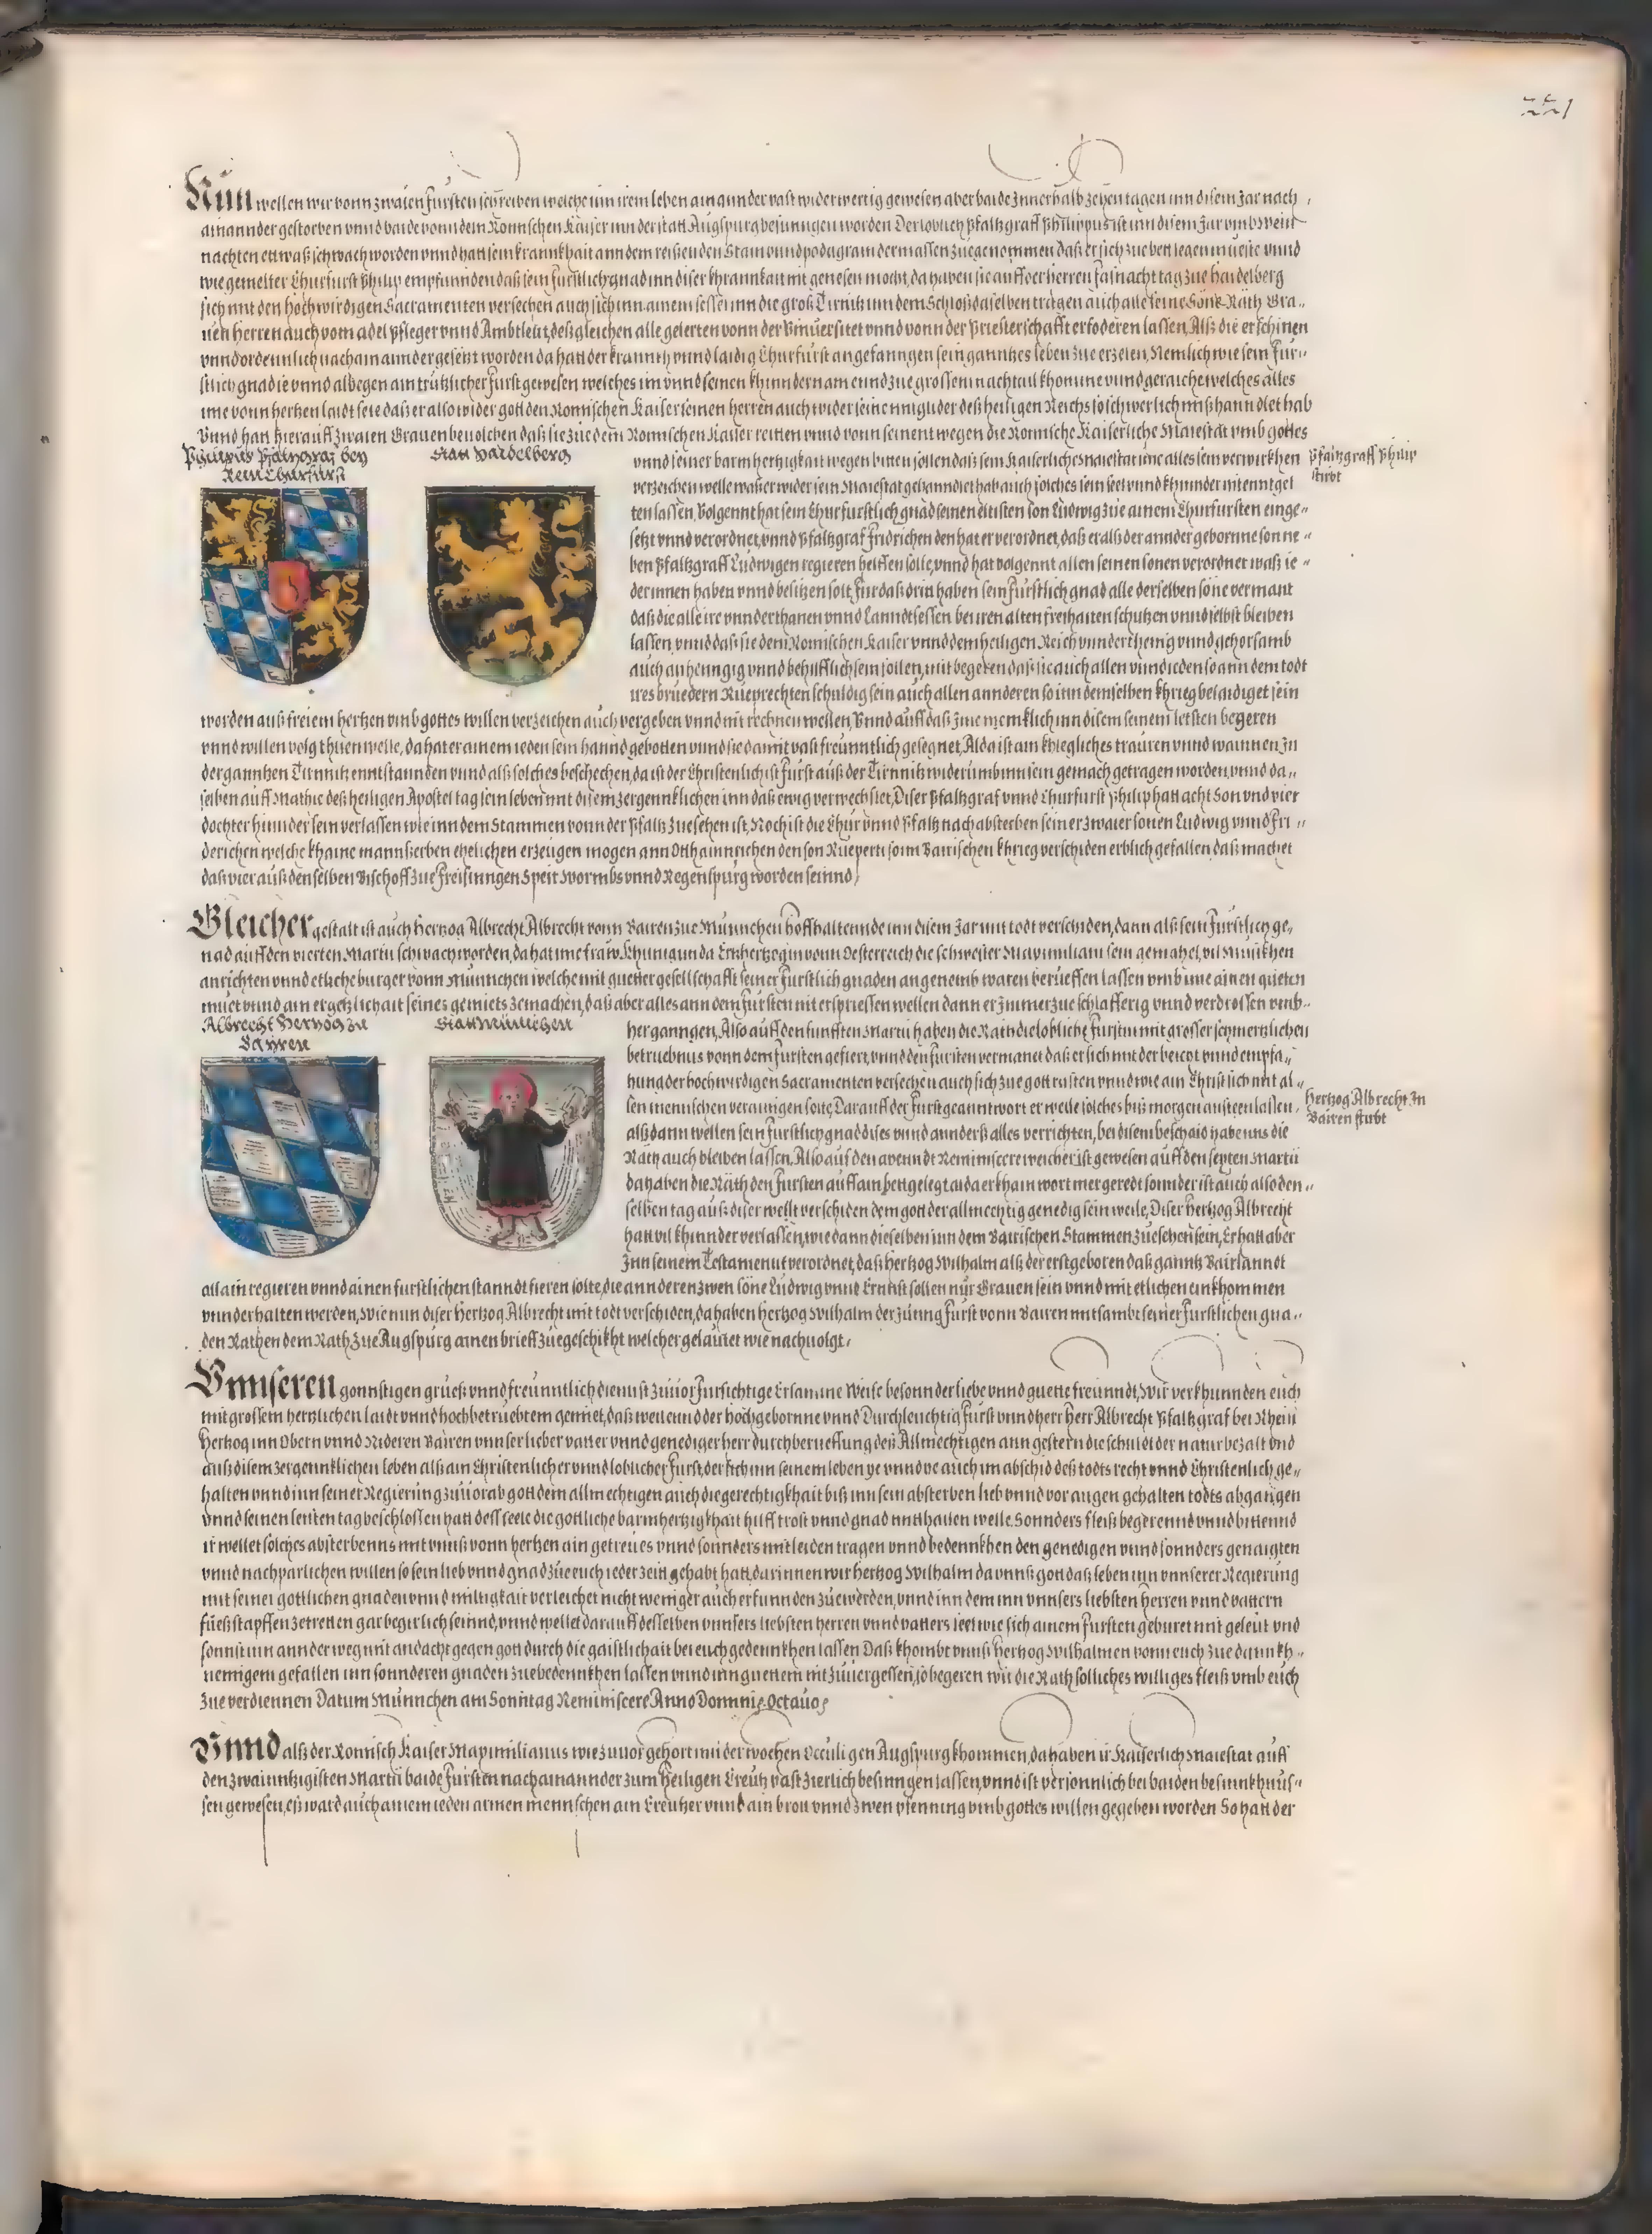 221
Nun wellen wir vonn zwaien Fürsten schreiben welche inn irem leben ain annder vast widerwertig gewesen aber baide Innerhalb zehen tagen inn disem Jar nach
ainannder gestorben vnnd baide vonn dem Romischen Kaiser inn der statt Augspurg besunngen worden Der loblich Pfaltzgraff Philippus ist inn disem Jar vmb wein
nachten ettwaß schwach worden vnnd hatt sein krannkhait ann dem reissenden Stain vnnd podagram dermassen zuegenommen daß er sich zue bett legen mueste vnnd
wie gemelter Churfürst Philip empfunnden daß sein furstlich gnad inn diser khrannkait nit genesen mocht, da haben sie auff der herren fasnacht tag zue haidelberg
sich mit den hochwirdigen Sacramenten versechen auch sich inn ainem sessel inn die groß Türnitz inn dem Schloß daselben tragen auch alle seine Söne Räth Gra-
uen herren auch vom adel pfleger vnnd Ambtleüt, deßgleichen alle gelerten vonn der Vniuersitet vnnd vonn der Priesterschafft erfoderen lassen, Alß die erschinen
vnnd ordennlich nach ainannder gesetzt worden da hatt der krannckh vnnd laidig Churfürst angefanngen sein ganntzes leben zue erzelen, Nemlich wie sein Fur-
stlich gnad ie vnnd albegen ain trützlicher fürst gewesen welches im vnnd seinen khinnderen am ennd zue grossem nachtail khomme vnnd geraiche welches alles
ime vonn hertzen laidt seie daß er also wider gott den Romischen Kaiser seinen herren auch wider seine mitglider deß heiligen Reichs so schwerlich mißhanndlet hab
Vnnd hatt hierauff zwaien Grauen beuolchen daß sie zue dem Romischen Kaiser reitten vnnd vonn seinent wegen die Romische Kaiserliche Maiestat vmb gottes
Philipus Pfaltzgraf bey
Rein Churfürst
Statt Haidelberg
vnnd seiner barmhertzigkait wegen bitten sollen daß sein Kaiserliche maiestat ime alles sein verwirkhen
Pfaltzgraff Philip
stirbt
verzeichen welle waß er wider sein Maiestat gehanndlet hab auch solches sein leib vnnd khinnder nit enntgel
ten lassen, Volgennt hat sein Churfürstlich gnad seinen eltisten son Ludwig zue ainem Churfürsten einge-
setzt vnnd verordnet, vnnd Pfaltzgraf Fridrichen den hat er verordnet, daß er alß der annder geborne son ne-
ben Pfaltzgraff Ludwigen regieren helffen solle, vnnd hat volgennt allen seinen sonen verordnet waß ie-
der innen haben vnnd besitzen solt, Für daß drit haben sein fürstlich gnad alle derselben söne vermant
daß die alle ire vnnderthanen vnnd Lanndtsessen bei iren alten freihaiten schutzen vnnd selbst bleiben
lassen, vnnd daß sie dem Romischen Kaiser vnnd dem heiligen Reich vnnderthenig vnnd gehorsamb
auch anhenngig vnnd behilfflich sein sollen, mit begeren daß sie auch allen vnnd ieden so ann dem todt
ires bruedern Rueprechten schuldig sein auch allen annderen so inn demselben khrieg belaidiget sein
worden auß freiem hertzen vmb gottes willen verzeichen auch vergeben vnnd nit rechnen wellen, Vnnd auff daß Ime menikhlich inn disem seinem letsten begeren
vnnd willen volg thuen welle, da hat er ainem ieden sein hannd gebotten vnnd sie damit vast freunntlich gesegnet, Alda ist ain khlegliches trauren vnnd wainnen In
der ganntzen Türnitz enntstannden vnnd alß solches beschechen, da ist der Christenlichist Fürst auß der Türnitz widerumb inn sein gemach getragen worden, vnnd da-
selben auff Mathie deß heiligen Apostel tag sein leben mit disem zergennklichen inn daß ewig verwechslet, Diser Pfaltzgraf vnnd Churfürst Philip hatt acht Son vnd vier
dochter hinnder sein verlassen wie inn dem Stammen vonn der Pfaltz zuesehen ist, Noch ist die Chür vnnd Pfaltz nach absterben seiner zwaier sonen Ludwig vnnd Fri-
derichen welche khaine mannßerben ehelichen erzeugen mogen ann Otthainrichen den son Rueperti so im Bairischen khrieg verschiden erblich gefallen, daß machet
daß vier auß denselben Bischoff zue Freisinngen Speir Wormbs vnnd Regenspürg worden seinnd,
Gleicher gestalt ist auch hertzog Albrecht Albrecht vonn Bairen zue Münnchen hoffhaltennde inn disem Jar mit todt verschiden, dann alß sein fürstlich ge-
nad auff den vierten Martii schwach worden, da hat ime fraw Khunigunda Ertzhertzogin vonn Oesterreich die schwester Maximiliani sein gemahel, vil Musikhen
anrichten vnnd etliche burger vonn Münnchen welche mit guetter gesellschafft seiner Furstlich gnaden angenemb waren berüeffen lassen vmb ime ainen gueten
muet vnnd ain ergetzlichait seines gemiets zemachen, daß aber alles ann dem fursten nit erspriessen wellen dann er Immerzue schlafferig vnnd verdrossen vmb-
Albrecht Hertzog zu
Bayren
Statt Münnichen
herganngen, Also auff den funfften Martii haben die Räth die lobliche Fürstin mit grosser schmertzlichen
betruebnus vonn dem fürsten gefiert, vnnd den fürsten vermanet daß er sich mit der beicht vnnd empfa-
hung der hochwirdigen Sacramenten versechen auch sich zue gott rüsten vnnd wie ain Christ sich mit al-
len mennschen verainigen solte, Darauff der Furst geanntwort er welle solches biß morgen ansteen lassen,
Hertzog Albrecht In
Bairen stirbt
alßdann wellen sein fürstlich gnad dises vnnd annders alles verrichten, bei disem beschaid haben es die
Räth auch bleiben lassen, Also auf den abenndt Reminiscere welcher ist gewesen auff den sechsten Martii
da haben die Räth den Fursten auff ain bett gelegt, alda er khain wort mer geredt sonnder ist auch also den-
selben tag auß diser wellt verschiden dem gott der allmechtig genedig sein welle, Diser Hertzog Albrecht
hatt vil khinnder verlassen, wie dann dieselben inn dem Bairischen Stammen zuesehen sein, Er hatt aber
Inn seinem Testament verordnet, daß hertzog Wilhalm alß der erstgeboren daß ganntz Bairlanndt
allain regieren vnnd ainen furstlichen stanndt fieren solte, die annderen zwen söne Ludwig vnnd Ernnst sollen nur Grauen sein vnnd mit etlichen einkhommen
vnnderhalten werden, Wie nun diser Hertzog Albrecht mit todt verschiden, da haben hertzog Wilhalm der Junng Furst vonn Bairen mitsambt seiner furstlichen gna-
den Räthen dem Rath zue Augspurg ainen brieff zuegeschikht welcher gelautet wie nachuolgt,
Vnnseren gonnstigen gruess vnnd freunntlich dienst Zuuor Fursichtige Ersamme Weise besonnder liebe vnnd guette freunndt, Wir verkhunnden euch
mit grossem hertzlichen laidt vnnd hochbetruebtem gemiet, daß weilennd der hochgebornne vnnd Durchleuchtig Fürst vnnd herr Herr Albrecht Pfaltzgraf bei Rhein
Hertzog inn Obern vnnd Nideren Bairen vnnser lieber vatter vnnd genediger herr durch berueffung deß Allmechtigen ann gestern die schuldt der natur bezalt vnd
auß disem zergennklichen leben alß ain Christenlicher vnnd loblicher Furst, der sich inn seinem leben ye vnnd ye auch im abschid deß todts recht vnnd Christenlich ge-
halten vnnd inn seiner Regierung zuuorab gott dem allmechtigen auch die gerechtigkhait biß inn sein absterben lieb vnnd vor augen gehalten todts abganngen
vnnd seinen letsten tag beschlossen hatt dess seele die gottliche barmhertzigkhait hilff trost vnnd gnad mitthailen welle, Sonnders fleiß begerennd vnnd bittennd
ir wellet solches absterbenns mit vnnß vonn hertzen ain getreues vnnd sonnders mitleiden tragen vnnd bedennkhen den genedigen vnnd sonnders genaigten
vnnd nachparlichen willen so sein lieb vnnd gnad zue euch ieder zeit gehabt hatt, darinnen wir hertzog Wilhalm da vnnß gott daß leben inn vnnserer Regierung
mit seinen gottlichen gnaden vnnd miltigkait verleichet nicht weniger auch erfunnden zuewerden, vnnd inn dem inn vnnsers liebsten herren vnnd vattern
fueßstapffen zetretten gar begirlich seinnd, vnnd wellet darauff desselben vnnsers liebsten herren vnnd vatters seel wie sich ainem fursten geburet mit geleut vnd
sonnst inn annder weg mit andacht gegen gott durch die gaistlichait bei euch gedennkhen lassen Daß khombt vnnß Hertzog Wilhalmen vonn euch zue dannkh-
nemigem gefallen inn sonnderen gnaden zuebedennkhen lassen vnnd inn guettem nit zuuergessen, so begeren wir die Räth solliches williges fleiß vmb euch
zue verdiennen Datum Münnchen am Sonntag Reminiscere Anno Domini Octauo,
Vnnd alß der Romisch Kaiser Maximilianus wie zuuor gehort inn der wochen Occuli gen Augspurg khommen, da haben ir Kaiserlich Maiestat auff
den zwainntzigisten Martii baide fursten nach ainannder zum Heiligen Creutz vast zierlich besinngen lassen, vnnd ist personnlich bei baiden besinnkhnus-
sen gewesen, es ward auch ainem ieden armen mennschen ain Creutzer vnnd ain brott vnnd zwen pfenning vmb gottes willen gegeben worden So hatt der